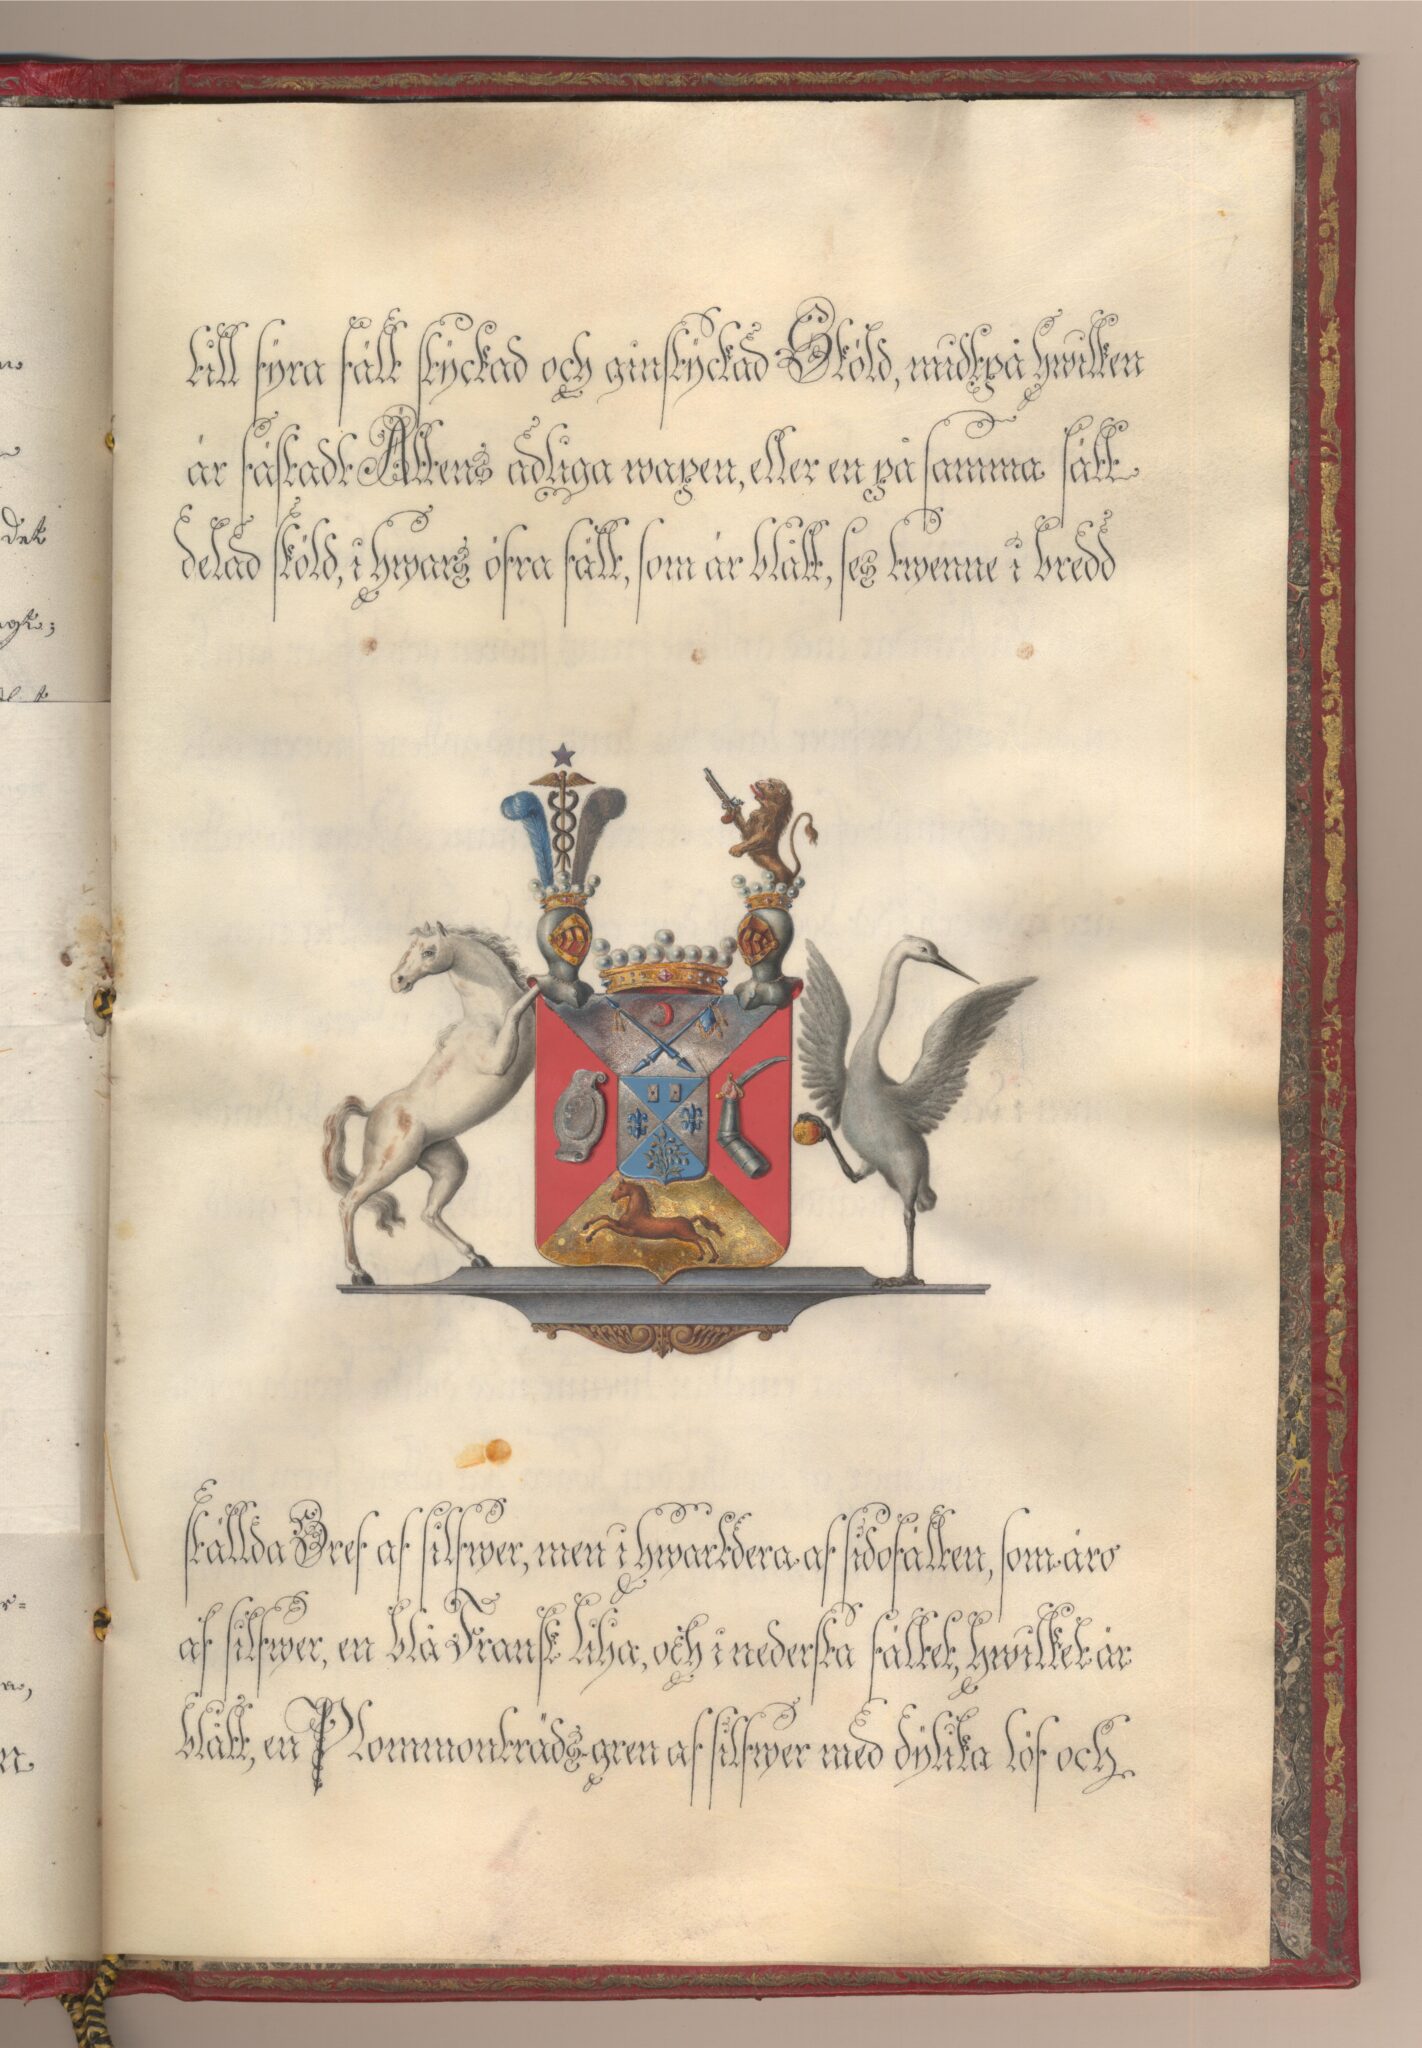 till fyra fält styckad och ginstyckad Sköld, midtpå hwilken
är fästadt Ättens adliga wapen, eller en på samma sätt
delad sköld, i hwars öfra fält, som är blått, ses twenne i bredd
ställda Bref af silfwer, men i hwartdera af sidofälten, som äro
af silfwer, en blå Fransk lilja, och i nedersta fältet, hwilket är
blått, en Plommonträds-gren af silfwer med dylika löf och
det